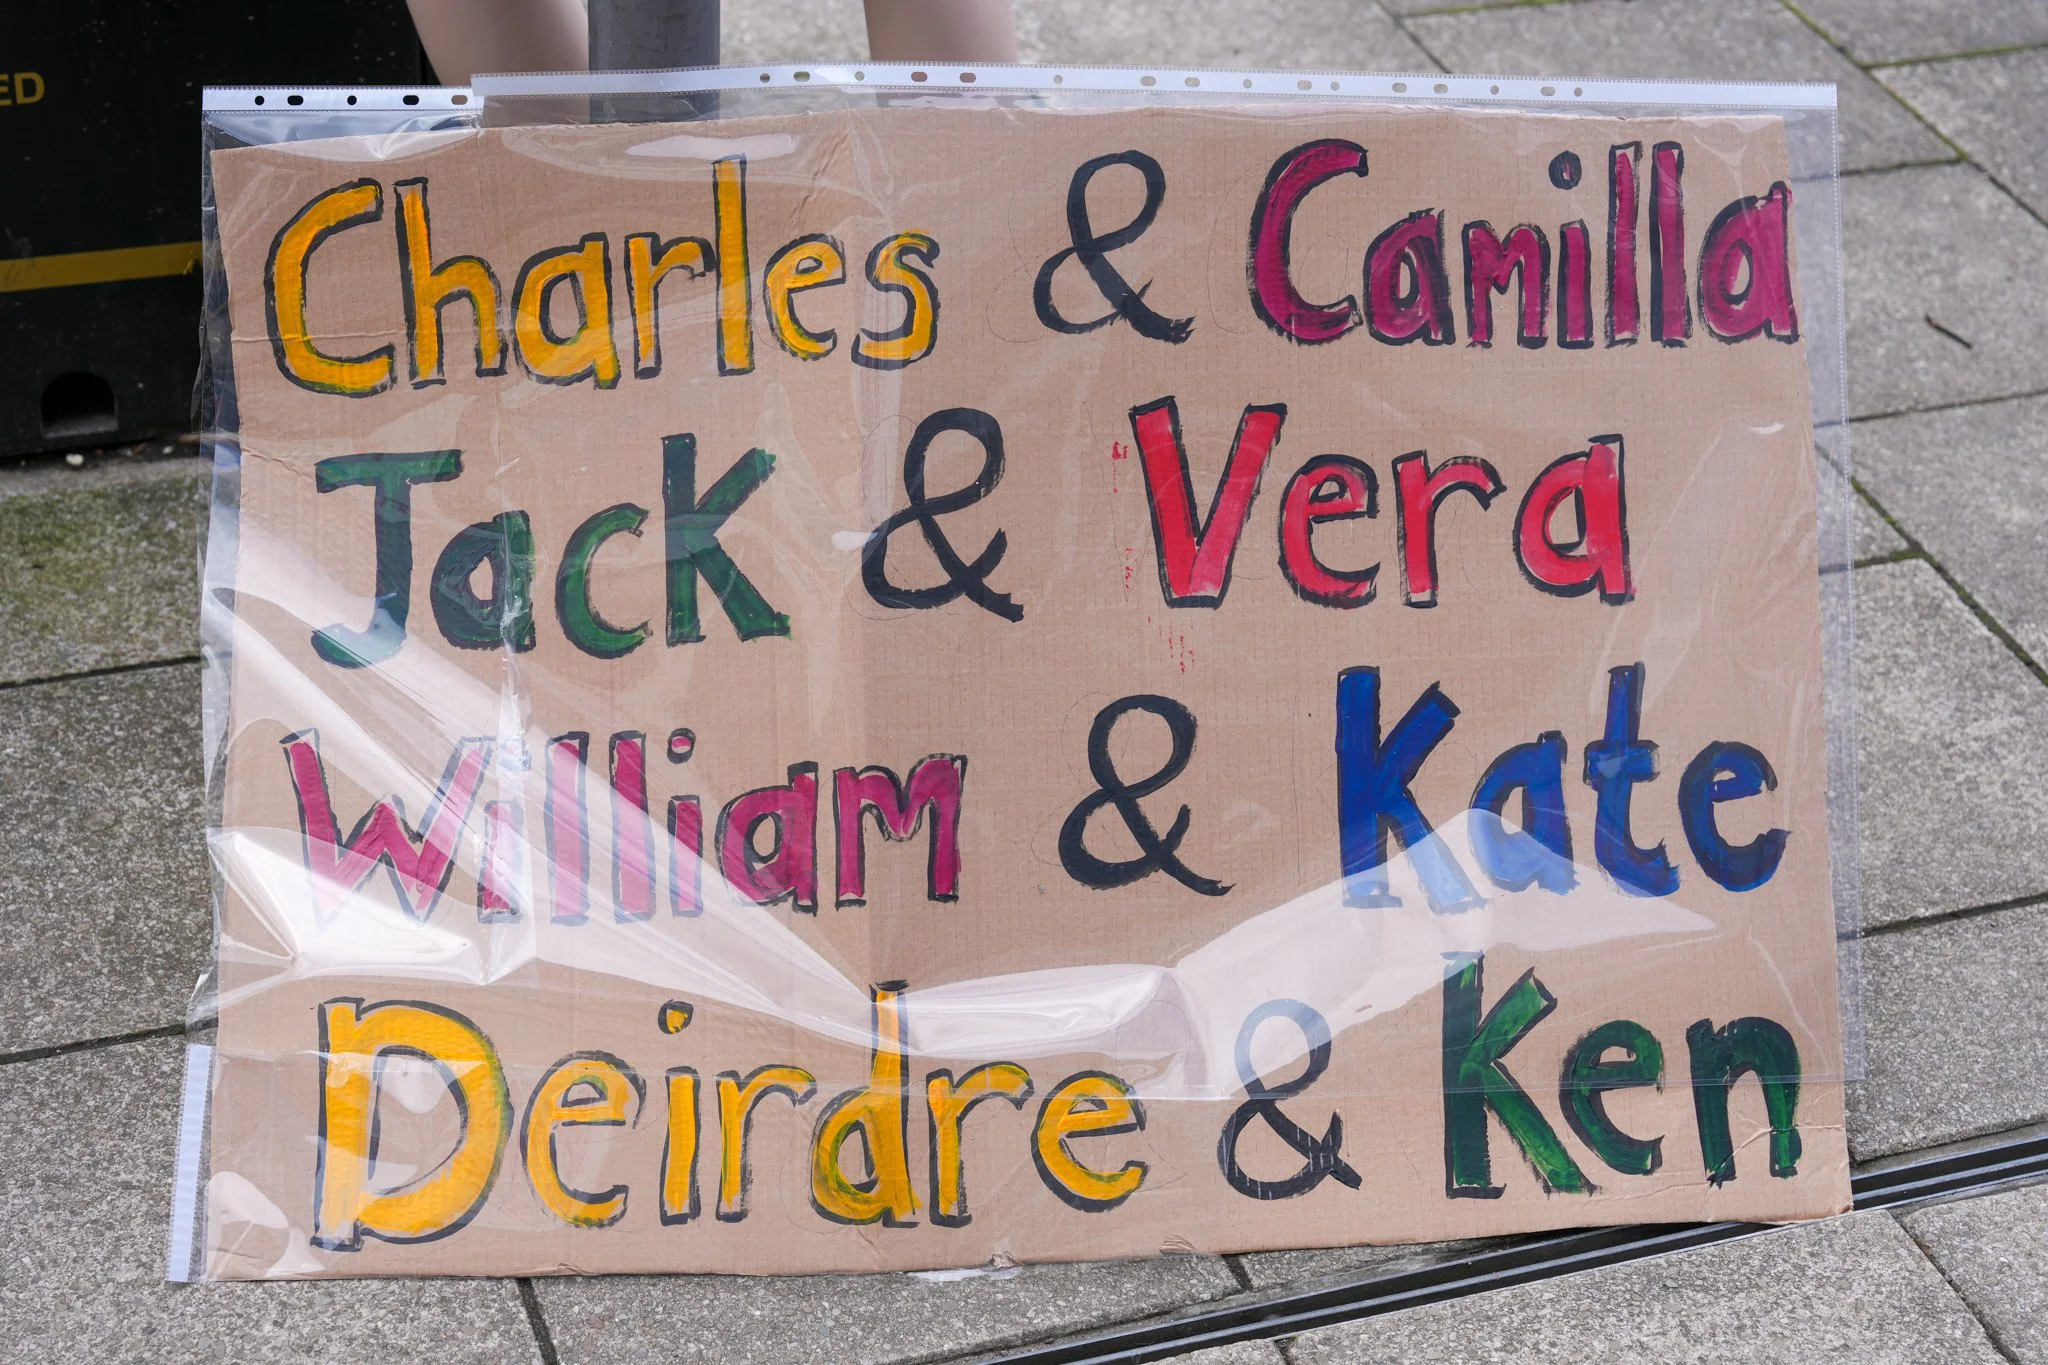 ED
Charles & Camilla
Jack & Vera
William & Kate
Deirdre & Ken